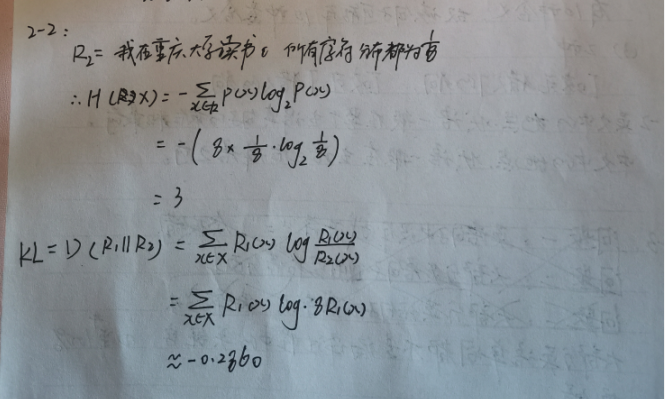 2-2:
R₂ = 我在重庆大学读书。所有字符分布都为1/8
∴ H(X) = -∑x∈X P(x)log₂P(x)
= -(8 × 1/8 · log₂ 1/8)
= 3
KL = D(R₁||R₂) = ∑x∈X R₁(x) log R₁(x)/R₂(x)
= ∑x∈X R₁(x) log·8R₁(x)
≈ -0.2360